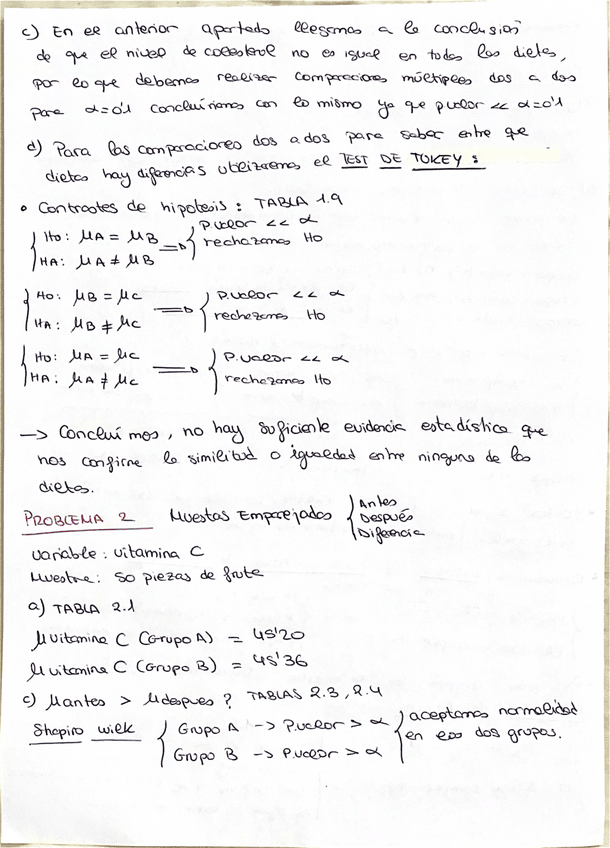 c) En el anterior apartado llegamos a la conclusión
de que el nivel de colesterol no es igual en todas las dietas,
por lo que debemos realizar comparaciones múltiples dos a dos
para α=0'1 concluiríamos con lo mismo ya que p.valor << α=0'1
d) Para las comparaciones dos a dos para saber entre que
dietas hay diferencias utilizaremos el TEST DE TUKEY:
• Contrastes de hipotesis: TABLA 1.9
H0: μA = μB
HA: μA ≠ μB
P.valor << α
rechazamos H0
H0: μB = μC
HA: μB ≠ μC
P.valor << α
rechazamos H0
H0: μA = μC
HA: μA ≠ μC
P.valor << α
rechazamos H0
→ Concluimos, no hay suficiente evidencia estadística que
nos confirme la similitud o igualdad entre ninguna de las
dietas.
PROBLEMA 2 Muestas Emparejadas
Antes
Después
Diferencia
variable: vitamina C
Muestra: 50 piezas de fruta
a) TABLA 2.1
μ vitamina C (Grupo A) = 45'20
μ vitamina C (Grupo B) = 45'36
c) μantes > μdespues? TABLAS 2.3, 2.4
Shapiro wilk
Grupo A → P.valor > α
Grupo B → P.valor > α
aceptamos normalidad
en esos dos grupos.